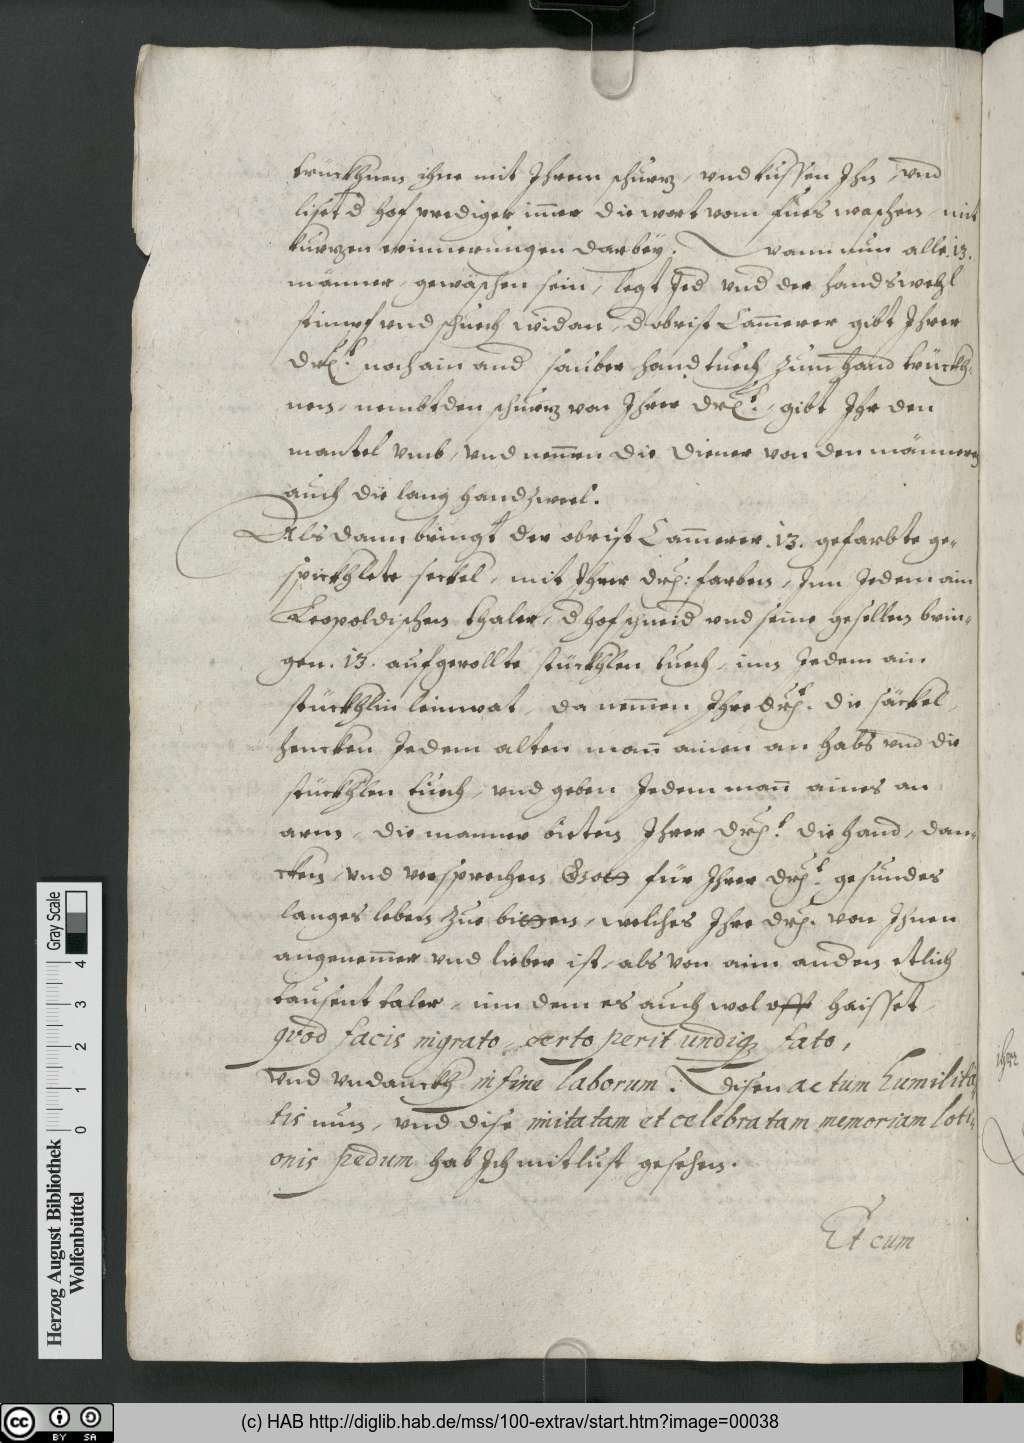 trückhnen ihne mit Ihrem schurz, vnd küssen Ihn, vnd
liset d hof prediger im̄er die wort vom fües waschen mit
kurzen erinnerungen darbey. wann nun alle .13.
männer, gewaschen sein, legt Jed vnd der handswehl
strimpf vnd schuech widan, d obrist Cam̄erer gibt Ihrer
Drl.t noch ain and sauber handtuech zum hand trückh-
nen, nembt den schurz von Ihrer Drl.t, gibt Ihr den
mantel vmb, vnd nem̄en die diener von den männern
auch die lang handzwel.
Als dann bringt der obrist Cam̄erer .13. gefarbte ge-
spickhlete seckel, mit Ihrer Drl: farben, Inn Jedem ain
Leopoldischen thaler, d hofschneid vnd seine gesellen brin-
gen .13. aufgerollte stückhlen tuech, inn Jedem ain
stückhlin leinwat, da nem̄en Ihre Drl.t die säckel,
hencken Jedem alten man̄ ainen an halß vnd die
stückhlen tuech, vnd geben Jedem man̄ aines an
arm, die manner bieten Ihrer Drl.t die hand, dan-
cken, vnd versprechen Gott für Ihrer Drl.t gesundes
langes leben zue bitten, welches Ihre Drl. von Ihnen
angenem̄er vnd lieber ist, als von aim andern etlich
tausent taler, inn dem es auch wol offt haisset,
quod facis ingrato, certo perit undiq3 fato,
vnd vndanckh in fine laborum. disen actum humilita-
tis nun, vnd dise imitatam et celebratam memoriam loti-
onis pedum hab Ich mit lust gesehen.
Et cum
Gray Scale
0 1 2 3 4
Herzog August Bibliothek
Wolfenbüttel
cc BY SA
(c) HAB http://diglib.hab.de/mss/100-extrav/start.htm?image=00038